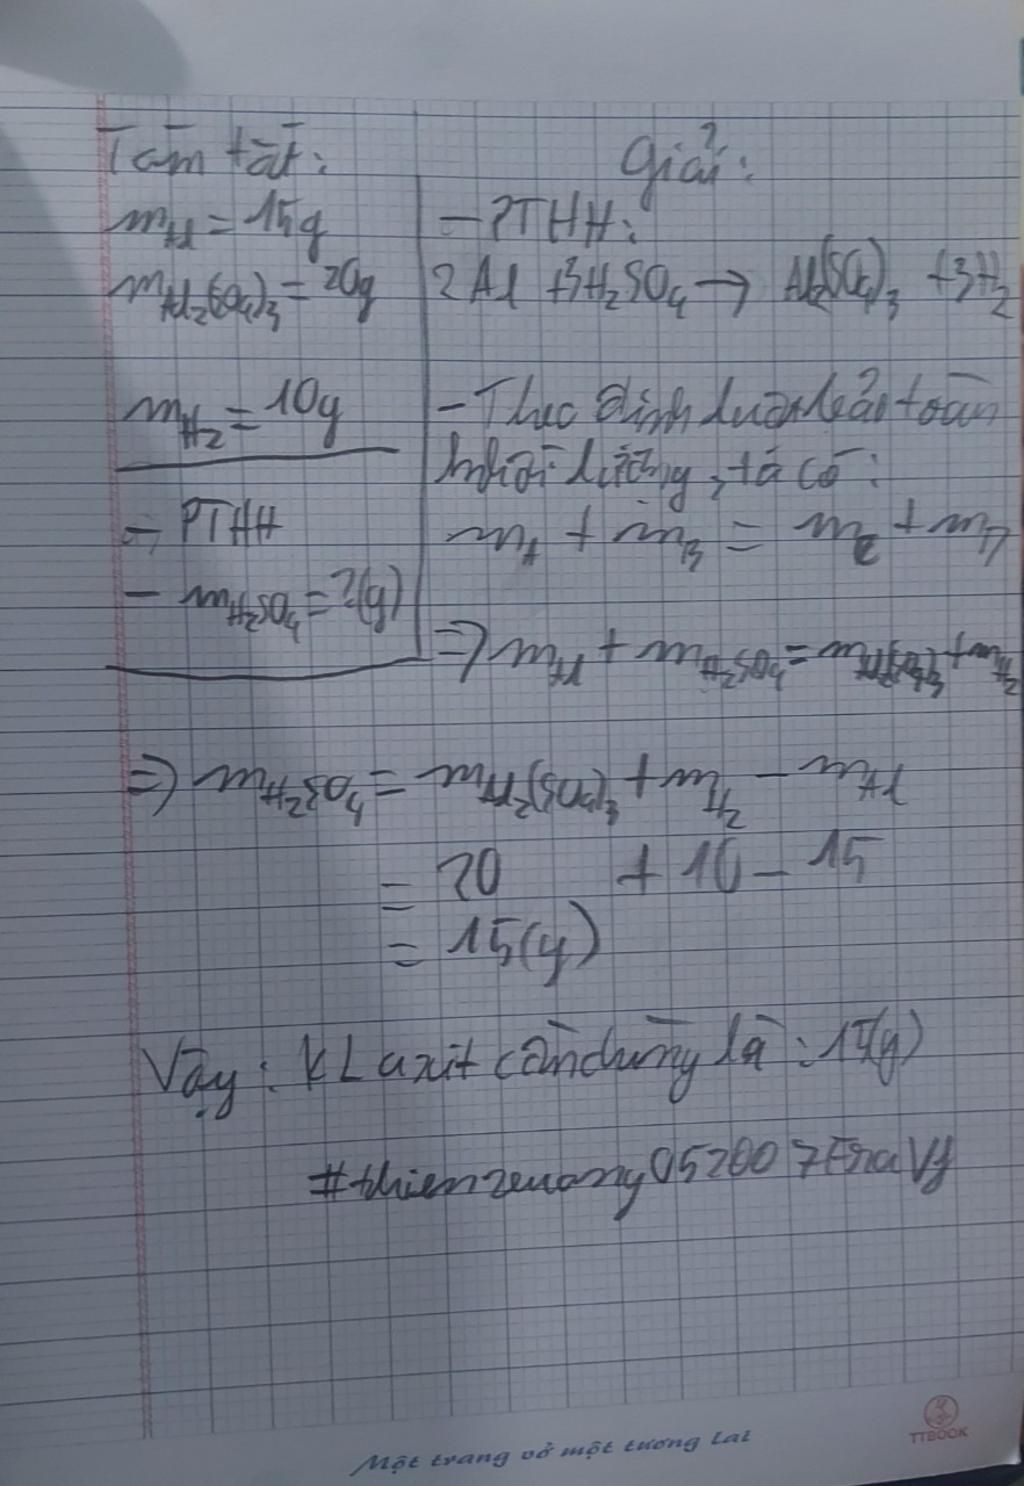 Tóm tắt:
mAl = 15g
mAl2(SO4)3 = 20g
mH2 = 10g
- PTHH
- mH2SO4 = ?(g)
Giải:
- PTHH:
2Al + 3H2SO4 → Al2(SO4)3 + 3H2
- Theo định luật bảo toàn
khối lượng, ta có:
m1 + m2 = m3 + m4
<=> mAl + mH2SO4 = mAl2(SO4)3 + mH2
<=> mH2SO4 = mAl2(SO4)3 + mH2 - mAl
= 20 + 10 - 15
= 15(g)
Vậy: KL axit cần dùng là: 15(g)
Một trang vở một tương lai
TTBOOK